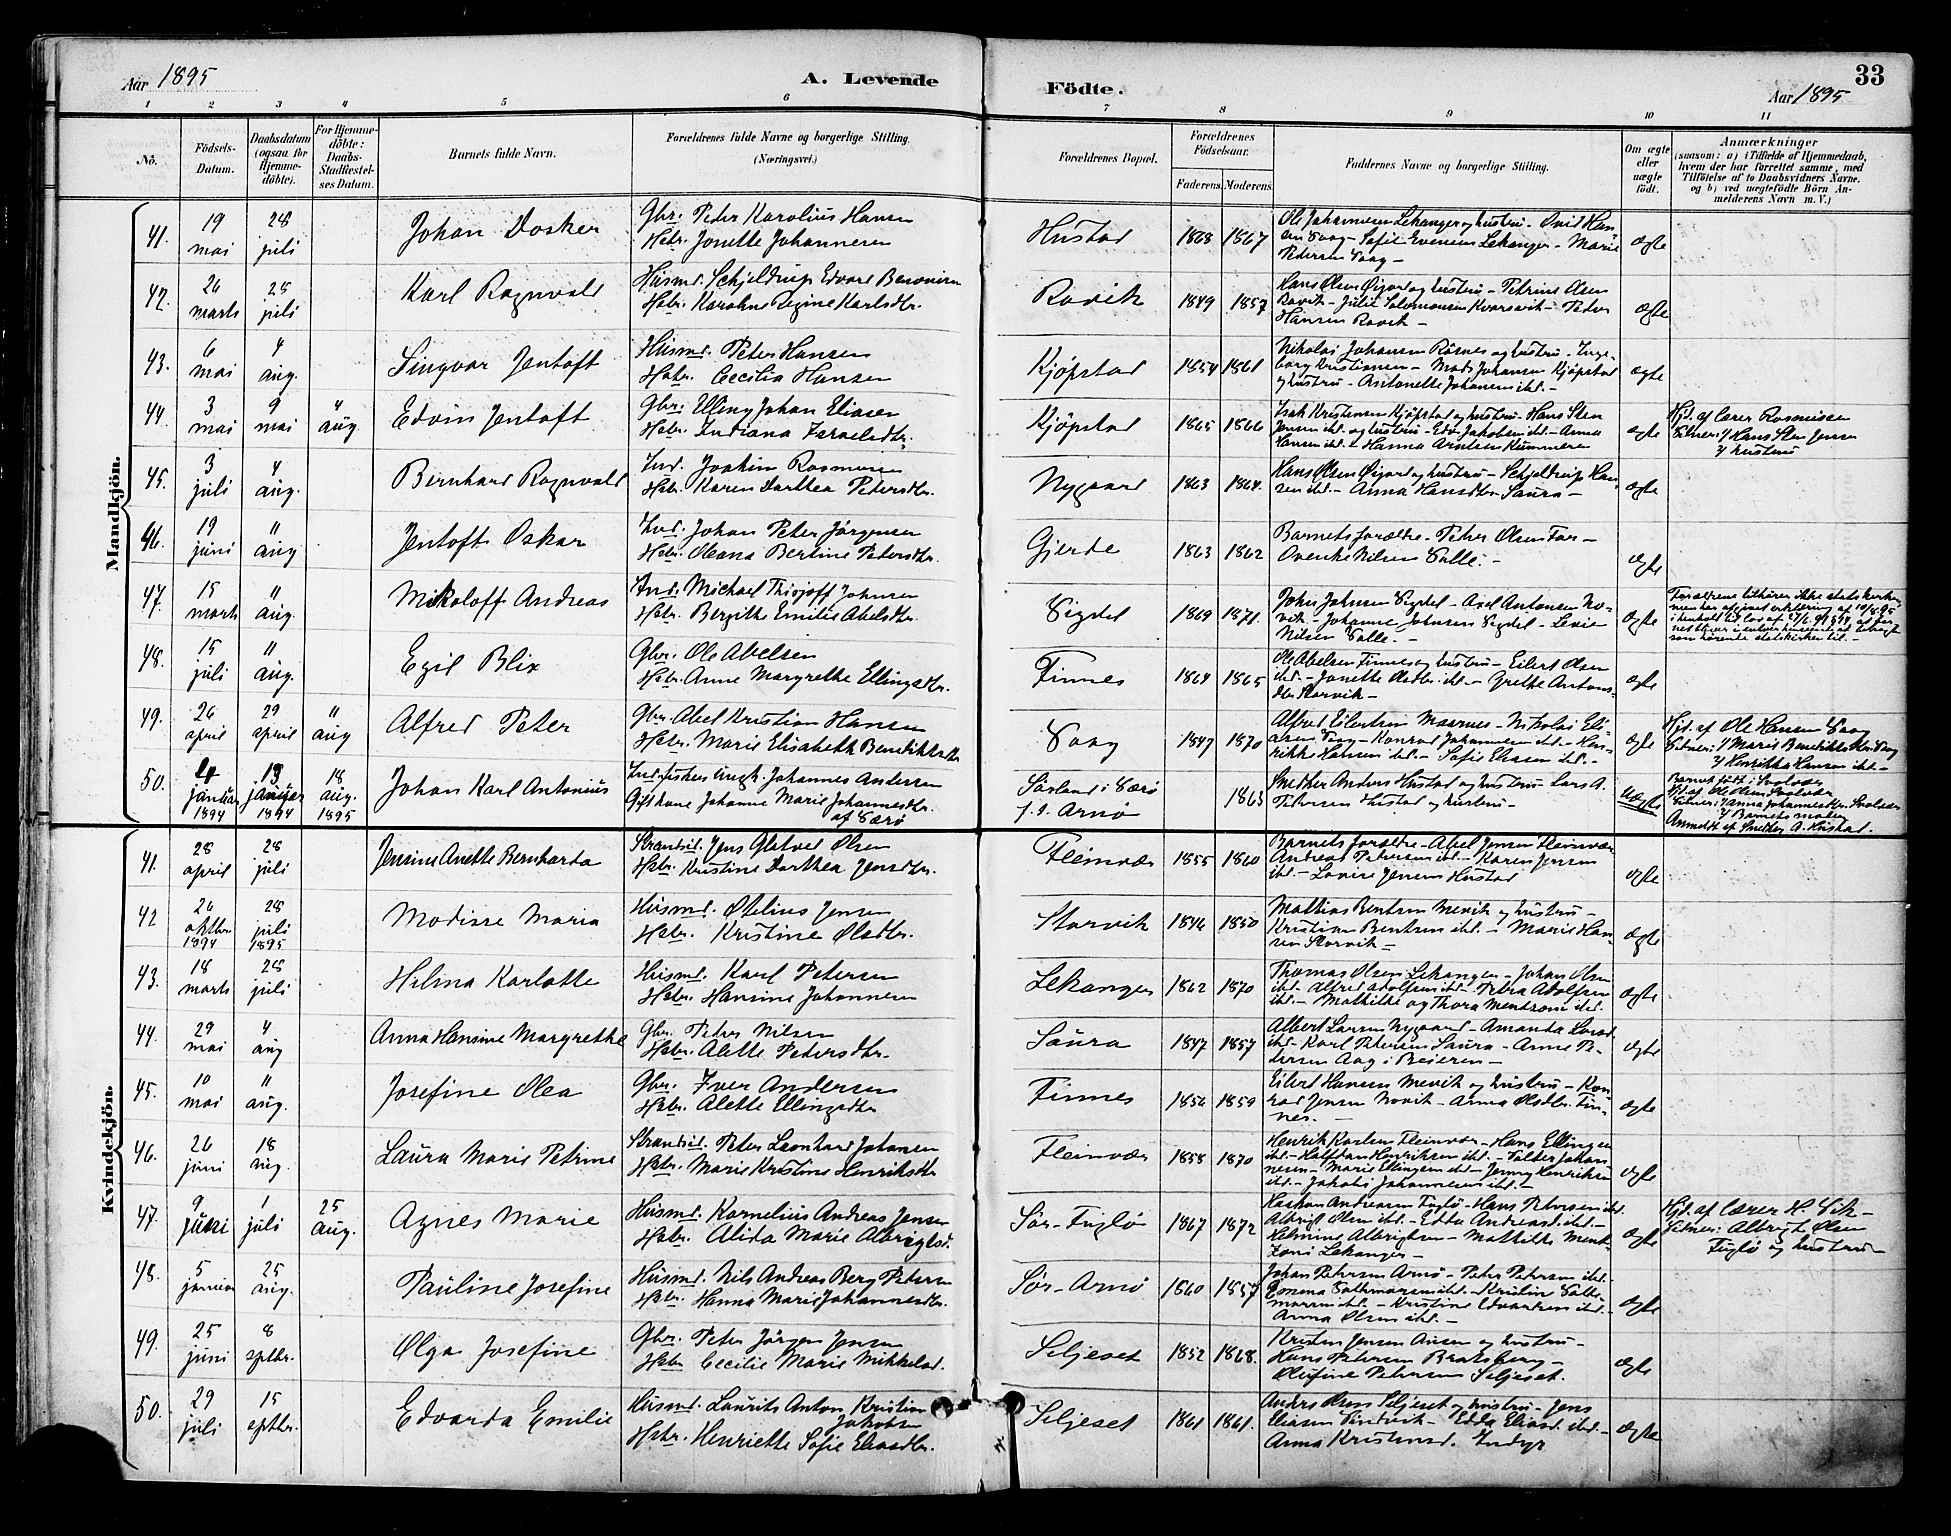 Aar 1895
A. Levende
Födte.
Aar 1895
33
1 2 3 4 5 6 7 8 9 10 11
No.
Födsels-
Datum.
Daabsdatum
(ogsaa for
Hjemme-
döbte).
For Hjemme-
döbte:
Daabs-
Stadfæstel-
ses Datum.
Barnets fulde Navn.
Forældrenes fulde Navne og borgerlige Stilling.
(Næringsvei.)
Forældrenes Bopæl.
Forældrenes
Födselsaar.
Faderens. Moderens.
Faddernes Navne og borgerlige Stilling.
Om ægte
eller
uægte
födt.
Anmærkninger
(saasom: a) i Tilfælde af Hjemmedaab,
hvem der har forrettet samme, med
Tilföielse af to Daabsvidners Navne,
og b) ved uægtefödte Börn An-
melderens Navn m. V.)
Mandkjön.
41. 19 mai 28 juli Johan Dosker
Gbr. Peter Karolius Hansen
Hstr. Jonette Johannesen
Hustad 1868 1867
Ole Johannesen Lekanger og hustru - Ovid Han-
sen Saag - Sofie Evensen Lekanger - Marie
Pedersen Saag -
ægte
42. 26 marts 28 juli Karl Ragnvald
Husmd. Schjeldrup Edvard
Hstr. Karoline Regine Karlsdtr.
Ravik 1849 1857
Hans Olsen Øigard og hustru - Petrine Olsen
Ravik - Julie Salomonsen Kvarsvik - Peder
Hansen Ravik -
ægte
43. 6 mai 4 aug. Singvar Jentoft
Husmd. Peter Hansen
Hstr. Cecilia Hansen
Kjöpstad 1854 1861
Nikolai Johansen Rösnes og hustru - Inge-
borg Kristiansen - Mads Johansen Kjöpstad
og hustru - Antonette Johansen ibd. -
ægte
44. 3 mai 9 mai 4 aug. Edvin Jentoft
Gbr. Elling Johan Eliasen
Hstr. Indiana Israelsdtr.
Kjöpstad 1865 1866
Isak Kristensen Kjöpstad og hustru - Hans Sten
Jensen ibd. og hustru - Edv. Jakobsen ibd. - Anna
Hansen ibd. - Hanna Arntsen
ægte
Hjd. af Lærer Rasmussen
Vitner: 1/ Hans Sten Jensen
2/ hustru
45. 3 juli 4 aug. Bernhard Ragnvald
Ind. Joakim Rasmussen
Hstr. Karen Dorthea Petersdtr.
Nygaard 1863 1864.
Hans Olsen Øigard og hustru - Schjeldrup Han-
sen ibd. - Anna Hansdtr. Saura -
ægte
46. 19 juni " aug Jentoft Oskar
Ind. Johan Peter Jörgensen
Hstr. Oleana Bertine Petersdtr.
Gjerde 1863 1862
Barnets forældre - Peter Olsen Far -
Ovenke Nilsen Valle. -
ægte
47. 15 marts " aug. Mikaloff Andreas
Ind. Michael Thiojoff Johnsen
Hstr. Bergitte Emilie Abelsdtr.
Sigdel 1869 1871.
John Johnsen Sigdel - Axel Antonsen No-
vik - Johanne Johnsen Sigdel - Lexie
Nilsen Valle. -
ægte
Forældrene tilhörer ikke statskirken
men har afgivet erklæring af 10/8 95
48. 15 juli " aug. Egil Blix
Gbr. Ole Abelsen
Hstr. Anne Margrethe Ellingsdtr.
Finnes 1864 1865
Ole Abelsen Finnes og hustru - Eilert Olsen
ibd. - Jonette Olsdtr. ibd. - Grethe Antons-
dtr. Storvik -
ægte
49. 26 april 29 april " aug Alfred Peter
Gbr. Abel Kristian Hansen
Hstr. Marie Elisabeth Benediktsdtr
Saag 1847 1870
Alfred Eilertsen Maarnes - Nikolai Eli-
asen Saag - Konrad Johannesen ibd. - Hen-
rikke Hansen ibd. - Sofie Eliasen ibd. -
ægte
Hjd. af Ole Hansen Saag
Vitner: 1/ Marie Benediktsdtr. Saag
2/ Henrikka Hansen ibd. -
50. 4 januar 1894 13 januar 1894 18 aug. 1895 Johan Karl Antonius
Ind. fisker Ungk. Johannes Andersen
Gift kone Johanne Marie Johannesdtr.
af Værö
Sörland i Værö
f. I. Arnö 1863
Smedker Anders Hustad og hustru - Lars A.
Petersen Hustad og hustru -
uægte
Barnet födt i Svolvær
Hjd. af Ole Olsen Svolvær
Vitner: 1/ Anna Johannesdtr. Svolvær
2/ Barnets moder
Anmeldt af Smedker A. Hustad.
Kvindekjön.
41. 28 april 28 juli Jensine Anette Bernharda
Strandsd. Jens Glatved Olsen
Hstr. Kristine Dorthea Jensdtr.
Fleinvær 1855 1860
Barnets forældre - Abel Jensen Fleinvær
Andreas Petersen ibd. - Karen Jensen
ibd. - Lovise Jensen Hustad
ægte
42 26 oktbr. 1894 28 juli 1895 Modisse Maria
Husmd. Otelius Jensen
Hstr. Kristine Olsdtr.
Storvik 1846 1850
Mathias Bentsen Mevik og hustru -
Kristian Bentsen ibd. - Marie Han-
sen Storvik -
ægte
43. 18 marts 28 juli Helma Karlotte
Husmd. Karl Petersen
Hstr. Hansine Johannesen
Lekanger 1862 1870
Thomas Olsen Lekanger - Johan Olsen
ibd. Alfred Adolfsen ibd. - Petra Adolfsen
ibd. - Mathilde og Thora Mentzoni ibd.
ægte
44. 29 mai 4 aug Anna Hansine Margrethe
Gbr. Peter Nilsen
Hstr. Alette Petersdtr.
Saura 1847 1857
Albert Larsen Nygaard - Amanda Larsd.
ibd. - Karl Petersen Saura - Anne Pe-
dersen Aag i Beieren -
ægte
45. 10 mai " aug. Josefine Olea
Gbr. Iver Andersen
Hstr. Alette Ellingsdtr
Finnes 1856 1859
Eilert Hansen Mevik og hustru - Kon-
rad Jensen Novik - Anna Olsdtr. Fin-
nes. -
ægte
46. 26 juni 18 aug. Laura Marie Petrine
Strandsd. Peter Leonhard Johansen
Hstr. Marie Kristine Henriksdtr
Fleinvær 1858 1870
Henrik Karlsen Fleinvær - Hans Ellingsen
ibd. - Halfdan Henriksen ibd. - Valder Johan-
nesen - Marie Ellingsen ibd. - Jenny Henriksen
ibd. - Jakobi Johannesen ibd. -
ægte
47. 9 juni 1 juli 25 aug. Agnes Marie
Husmd. Kornelius Andreas Jensen
Hstr. Alida Marie Albrigtsd.
Sör-Fuglö 1867 1872
Haakon Andreasen Fuglö - Hans Petersen ibd.
Albrigt Olsen ibd. - Edda Andreasd. ibd. -
Helmine Albrigtsen - Mathilde Ment-
zoni Lekanger -
ægte
Hjd. af Lærer H. Vik -
Vitner: Albrigt Olsen
Fuglö og hustru
48. 5 januar 25 aug. Pauline Josefine
Husmd. Nils Andreas Berg Petersen
Hstr. Hanna Marie Johannesdtr.
Sör-Arnö 1860 1857
Johan Petersen Arnö - Peter Petersen ibd. -
Emma ibd. - Kristine
ibd. - Kristine Edvardsen ibd. -
Anna Olsen ibd. -
ægte
49. 25 juni 8 septbr. Olga Josefine
Gbr. Peter Jörgen Jensen
Hstr Cecilie Marie Mikkelsd.
Seljeset 1852 1868.
Kristen Jensen Ansen og hustru -
Hans Petersen Bratsberg -
Olufine Petersen Seljeset.
ægte
50. 29 juli 15 septbr. Edvarda Emilie
Husmd. Laurits Anton Kristian
Jakobsen
Hstr. Henriette Sofie Eliasdtr.
Seljeset 1861 1861.
Anders Olsen Seljeset og hustru - Jens
Eliasen Sandvik - Edda Eliasd. ibd. -
Anna Kristensd. Indyr
ægte